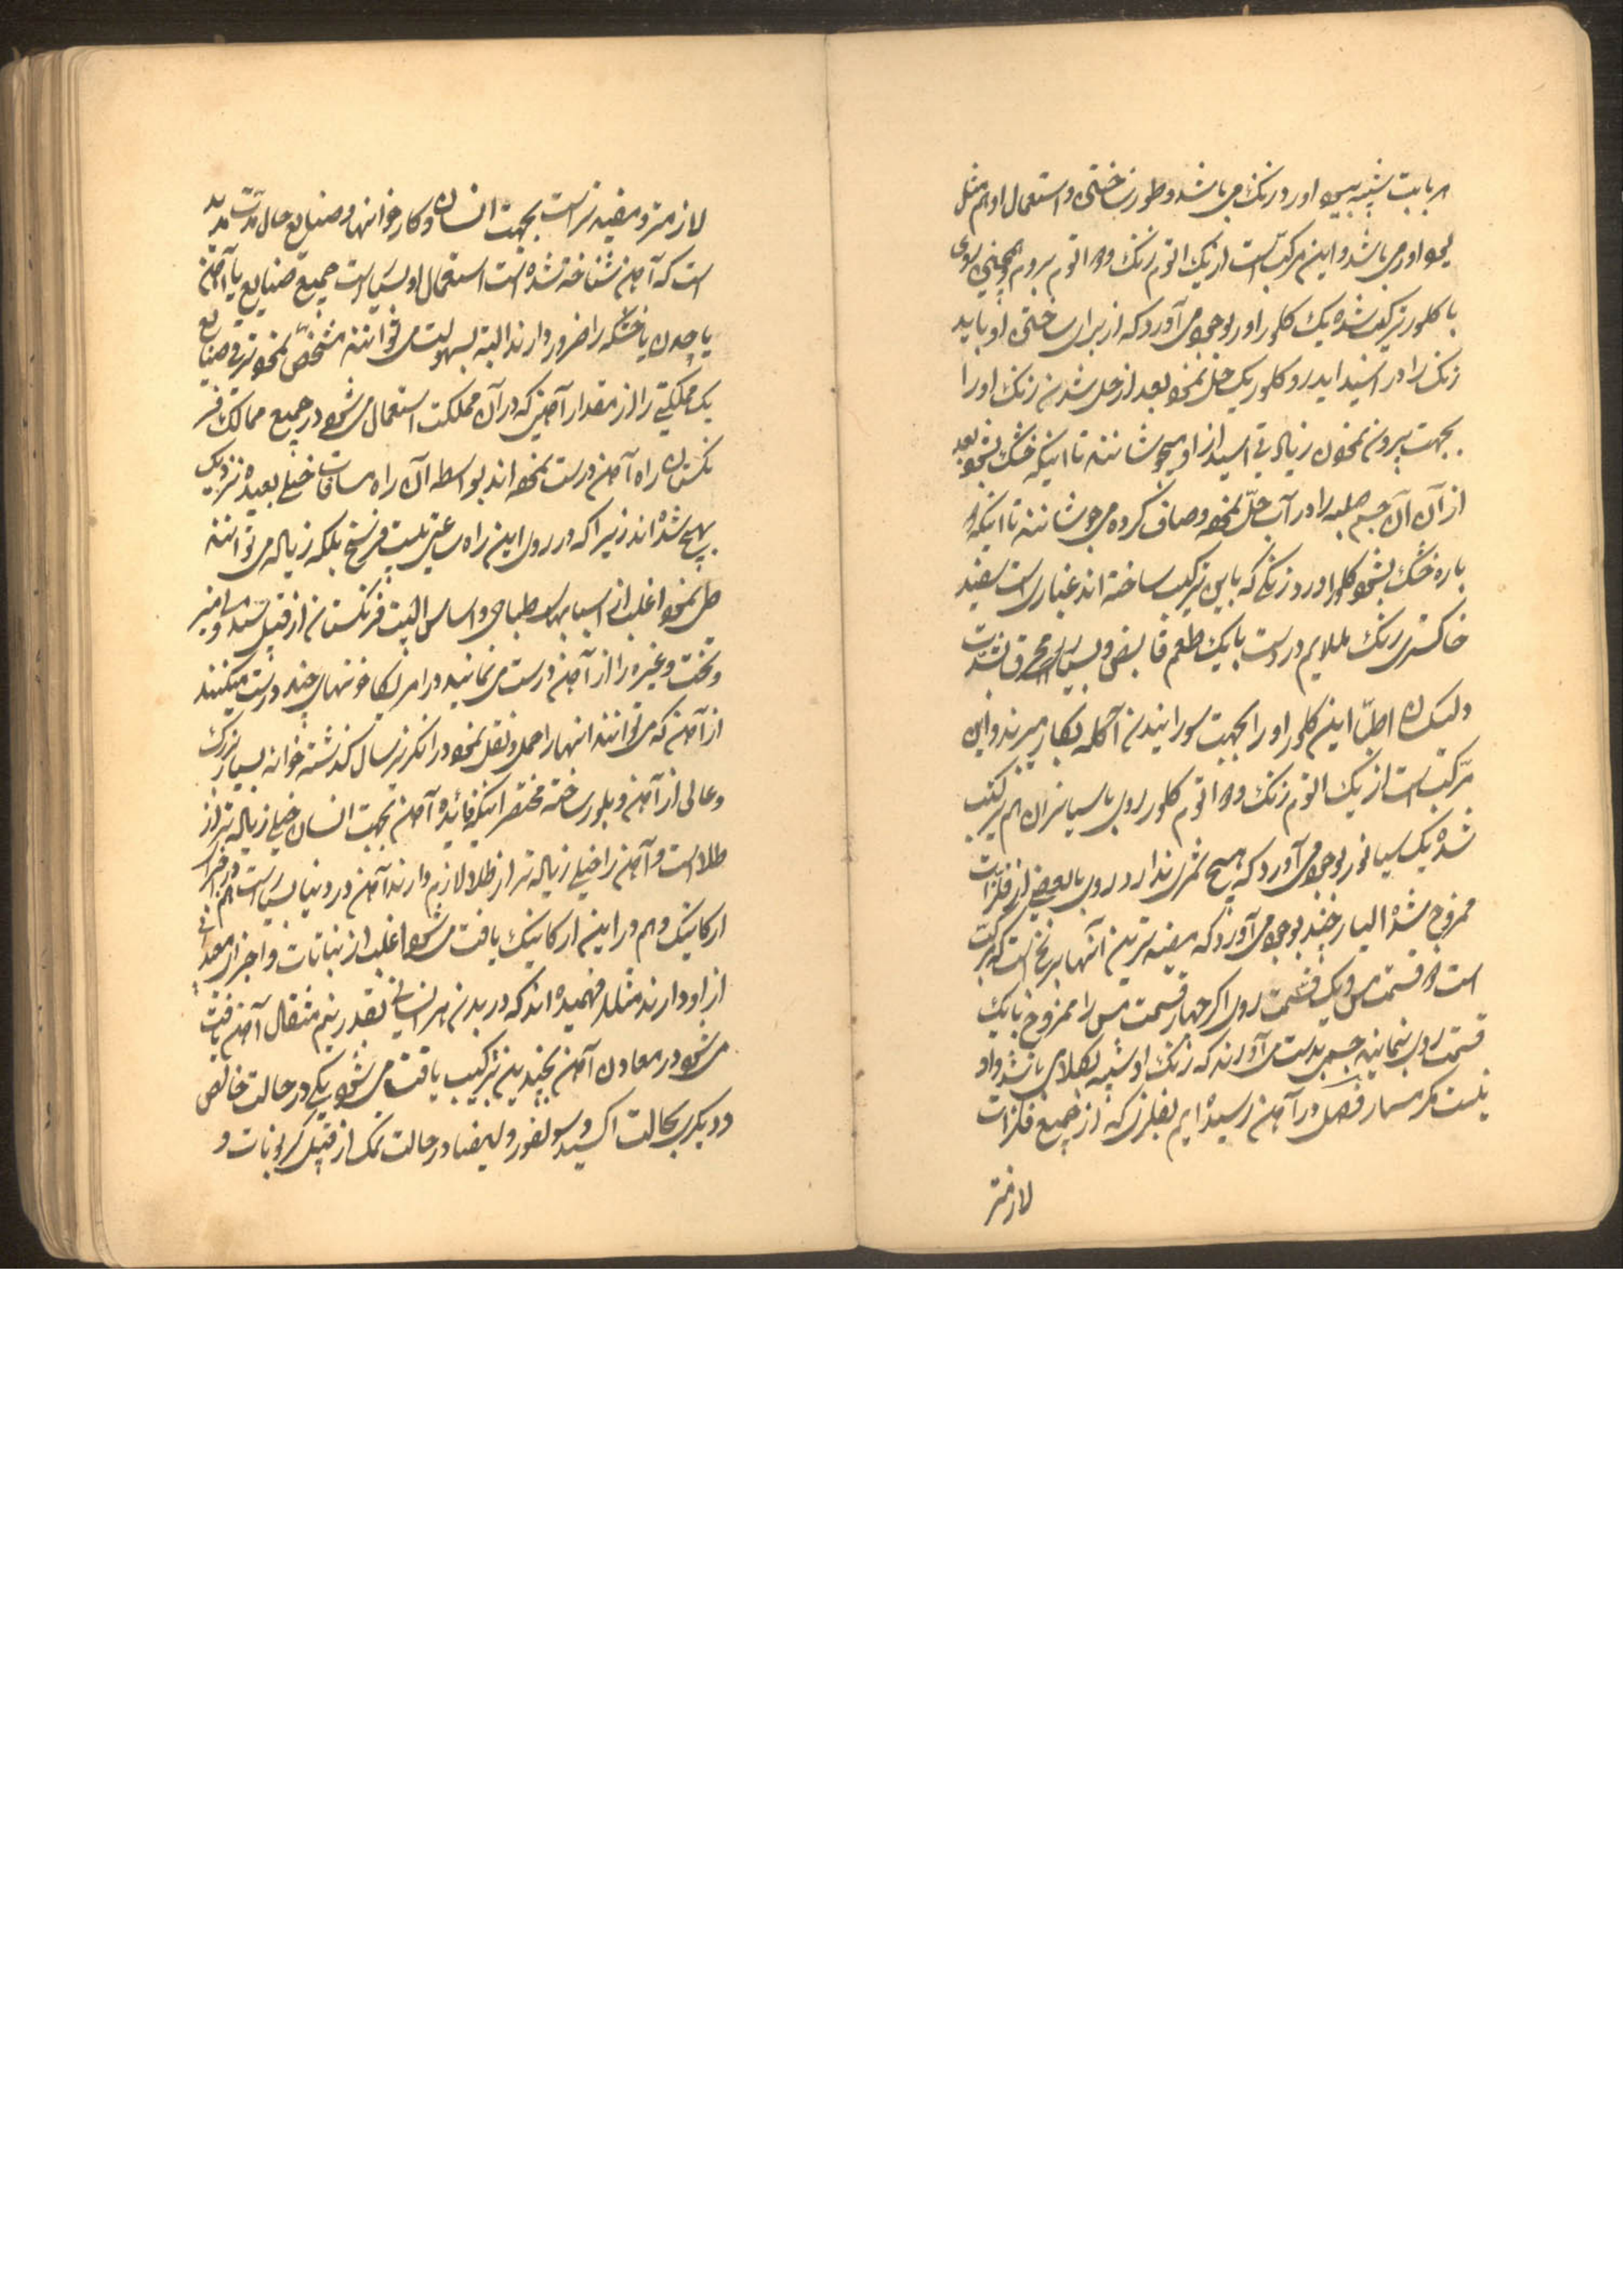 هر بابت شبیه بیود اور دو زنک می باشد و طور ساختن و استعمال او هم مثل
یود اور می باشد و این مرکب است از یک اتوم زنک و اتوم بروم و همچنین روی
با کلور ترکیب شده یک کلور اور بوجود می آورد که از برای ساختن او باید
زنک را در اسید ایدرو کلوریک حل نمود بعد از حل شدن زنک او را
بجهت بیرون نمودن زیادتی اسید از او میجوشانند تا اینکه خشک بشود بعد
از آن آن جسم صلبه را در آب حل نموده و صاف کرده میجوشانند تا اینکه
باره خشک بشود کلور اور دو زنکی که باین ترکیب ساخته اند غباری است سفید
خاکستری رنک ملایم در دست با یک طعم قابض و بسیار محرق
ولیکن اطبا این کلور اور را بجهت سورانیدن آکله بکار میبرند و این
مرکب است از یک اتوم زنک و اتوم کلور روی با سیانژن هم ترکیب
شده یک سیانور بوجود می آورد که هیچ ثمری ندارد روی با بعضی از فلزات
ممزوج شده الیاژ چند بوجود می آورد که مفیدترین آنها برنج است که مرکب
است از قسمت مس و یک قسمت روی اکر چهار قسمت مس را ممزوج با یک
قسمت روی بنمایند جسمی بدست می آورند که رنک او شبیه بطلا می باشد و او
نیست مکر سمار فصل در آهن رسیده ایم بفلزی که از جمیع فلزات
لازمتر
لازمتر و مفیدتر است بجهت انسان و کارخوانها و صنایع حال مدت مدید
است که آهن شناخته شده است استعمال او بسیار است جمیع صنایع یا آهن
یا چدن یا خشکه را ضرور دارند البته بسهولت می توانند مشخص نمود ترقی صنایع
یک مملکتی را از مقدار آهنی که در آن مملکت استعمال می شود در جمیع ممالک فر
نکستان راه آهن درست نموده اند بواسطه آن راه مسافات خیلی بعیده نزدیک
بهم شده اند زیرا که در روی این راه ساعتی بیست فرسنخ بلکه زیاده می توانند
طی نمود اغلب از اسبابهای طباخی و اساس البیت فرنکستان از قبیل میز
و تخت و غیره را از آهن درست می نمایند در امریکا خونهای چند درست میکنند
از آهن که می توانند انها را حمل و نقل نمود در انکلیز سال کذشته خوانه بسیار بزرک
و عالی از آهن و بلور ساخته مختصر اینکه فائده آهن بجهت انسان خیلی زیاده تر از
طلا است و آهن را خیلی زیاده تر از طلا لازم دارند آهن در دنیا بسیار است هم در اجزای
ارکانیک و هم در این ارکانیک یافت می شود اغلب از نباتات و اجزای معدنی
از او دارند مثلا فهمیده اند که در بدن هر انسانی بقدر نیم مثقال آهن یافت
می شود در معادن آهن بچندین ترکیب یافت می شود یکی در حالت خالص
و دیکری بحالت اکسید و سولفور و ایضا در حالت نمک از قبیل کربونات و